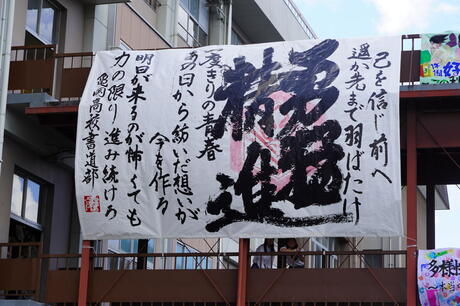 己を信じ 前へ
遥か先まで羽ばたけ
勇猛
精進
一度きりの青春
あの日から紡いだ想いが
今を作る
明日が来るのが怖くても
力の限り 進み続けろ
亀岡高校書道部
多様性